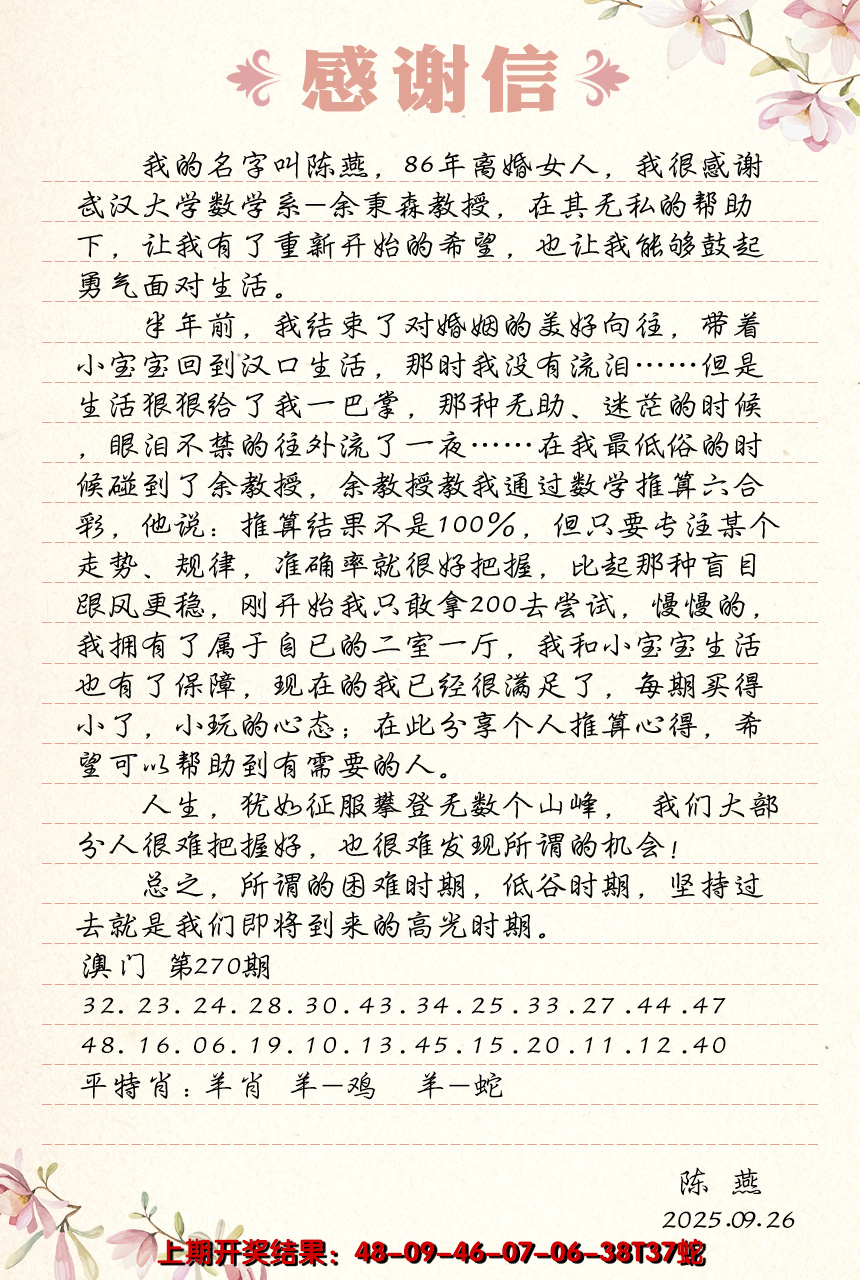 感谢信
我的名字叫陈燕，86年离婚女人，我很感谢
武汉大学数学系—余秉森教授，在其无私的帮助
下，让我有了重新开始的希望，也让我能够鼓起
勇气面对生活。
半年前，我结束了对婚姻的美好向往，带着
小宝宝回到汉口生活，那时我没有流泪……但是
生活狠狠给了我一巴掌，那种无助、迷茫的时候
，眼泪不禁的往外流了一夜……在我最低俗的时
候碰到了余教授，余教授教我通过数学推算六合
彩，他说：推算结果不是100%，但只要专注某个
走势、规律，准确率就很好把握，比起那种盲目
跟风更稳，刚开始我只敢拿200去尝试，慢慢的，
我拥有了属于自已的二室一厅，我和小宝宝生活
也有了保障，现在的我已经很满足了，每期买得
小了，小玩的心态；在此分享个人推算心得，希
望可以帮助到有需要的人。
人生，犹如征服攀登无数个山峰， 我们大部
分人很难把握好，也很难发现所谓的机会！
总之，所谓的困难时期，低谷时期，坚持过
去就是我们即将到来的高光时期。
澳门 第270期
32.23.24.28.30.43.34.25.33.27.44.47
48.16.06.19.10.13.45.15.20.11.12.40
平特肖：羊肖 羊—鸡 羊—蛇
陈 燕
2025.09.26
上期开奖结果：48-09-46-07-06-38T37蛇